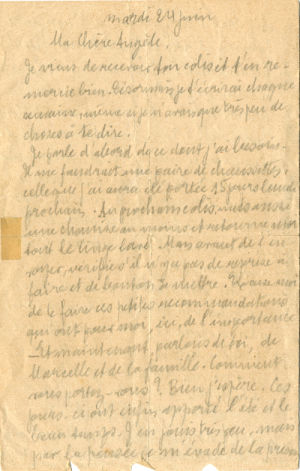 mardi 24 juin
Ma Chère Angèle,
Je viens de recevoir ton colis et t'en re-
mercie bien. Désormais je t'écrirai chaque
semaine, même si je n'avais que très peu de
choses à te dire.
Je parle d'abord de ce dont j'ai besoin.
Il me faudrait une paire de chaussettes,
celle que j'ai aura été portée 15 jours lundi
prochain. Au prochain colis, mets aussi
une chemise au moins et retourne moi
tout le linge lavé. Mais avant de l'en-
voyer, vérifies s'il n'y a pas de reprise à
faire et de bouton à mettre. Excuse moi
de te faire ces petites recommandations
qui ont pour moi, ici, de l'importance
Et maintenant parlons de toi, de
Marcelle et de la famille. Comment
vous portez-vous ? Bien j'espère. Ces
jours-ci ont enfin apporté l'été et le
beau temps. J'en jouis très peu, mais
par la pensée je m'évade de la prison